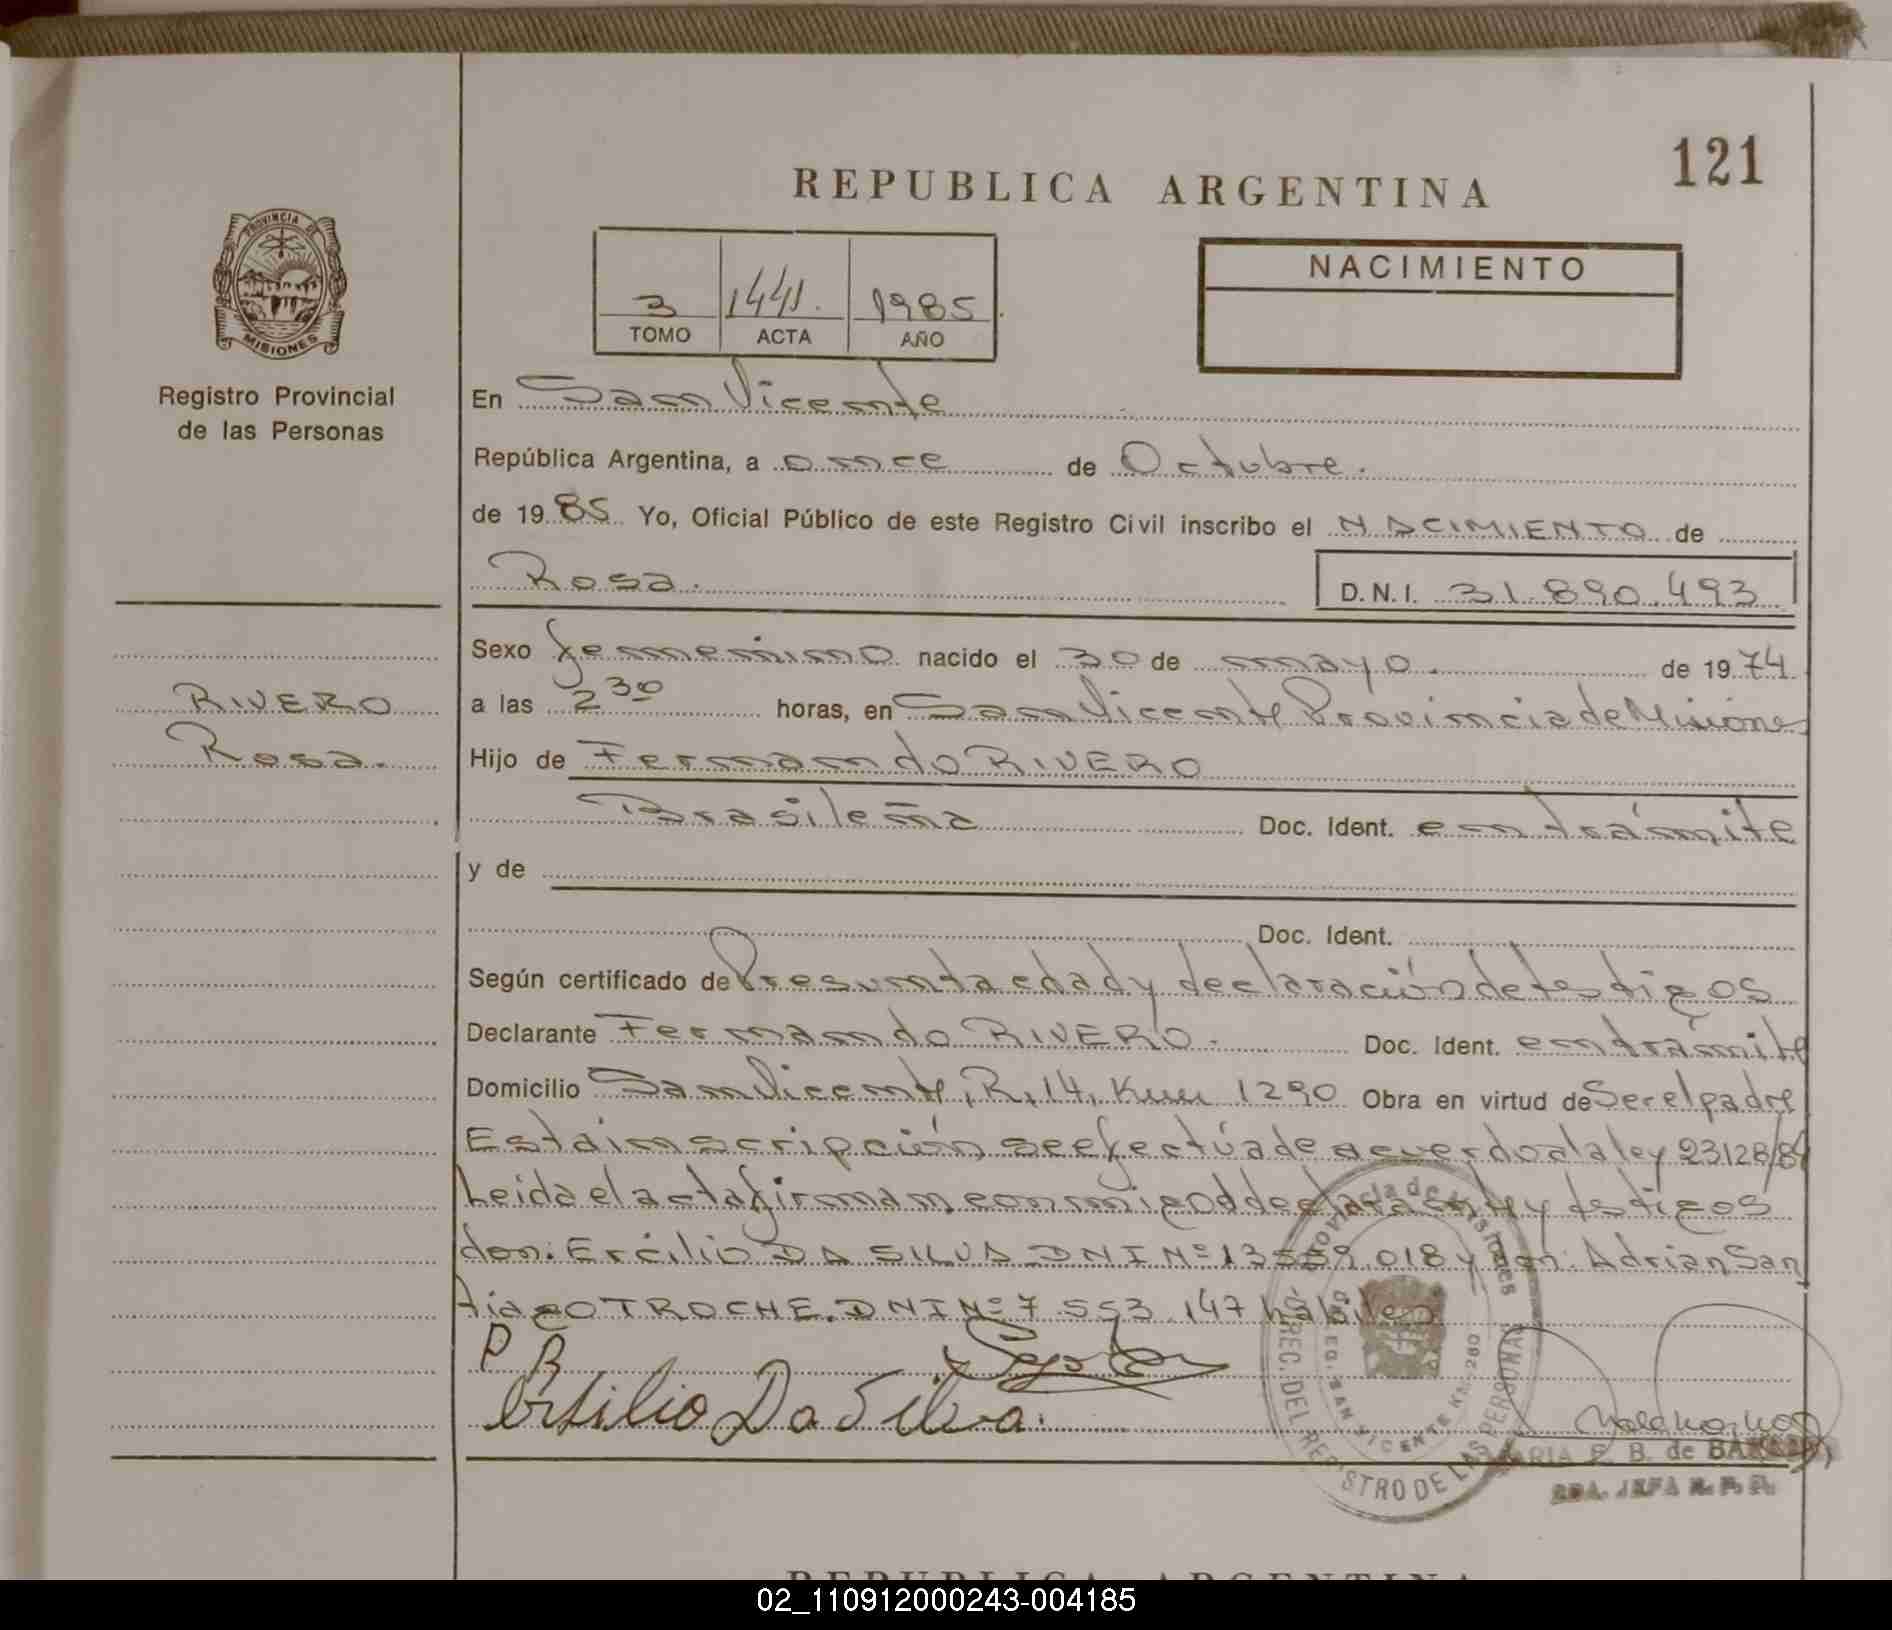 121
REPUBLICA ARGENTINA
PROVINCIA DE
MISIONES
Registro Provincial
de las Personas
3 1441. 1985
TOMO ACTA AÑO
NACIMIENTO
En San Vicente
República Argentina, a once de Octubre.
de 1985 Yo, Oficial Público de este Registro Civil inscribo el NACIMIENTO de
Rosa. D.N.I. 31.890.493
RIVERO
Rosa.
Sexo femenino nacido el 30 de mayo. de 1974
a las 2 30 horas, en San Vicente Provincia de Misiones
Hijo de Fernando RIVERO
Brasileña Doc. Ident. en trámite
y de
Doc. Ident.
Según certificado de Presunta edad y declaración de testigos
Declarante Fernando RIVERO. Doc. Ident. en trámite
Domicilio San Vicente, R, 14, Km 1290 Obra en virtud de Ser el padre
Esta inscripción se efectúa de acuerdo a la ley 23128/84
Leída el acta firman conmigo el declarante y testigos
don: Ercilio DA SILVA DNI Nº 13559.018 y don: Adrian San
tiago TROCHE. DNI Nº 7.553.147 hábiles
P R
Ersilio Da Silva.
Provincia de Misiones
REC. DEL REGISTRO DE LAS PERSONAS
SAN VICENTE KM. 280
MARIA E. B. de
JEFA R. P. P.
REPUBLICA ARGENTINA
02_110912000243-004185